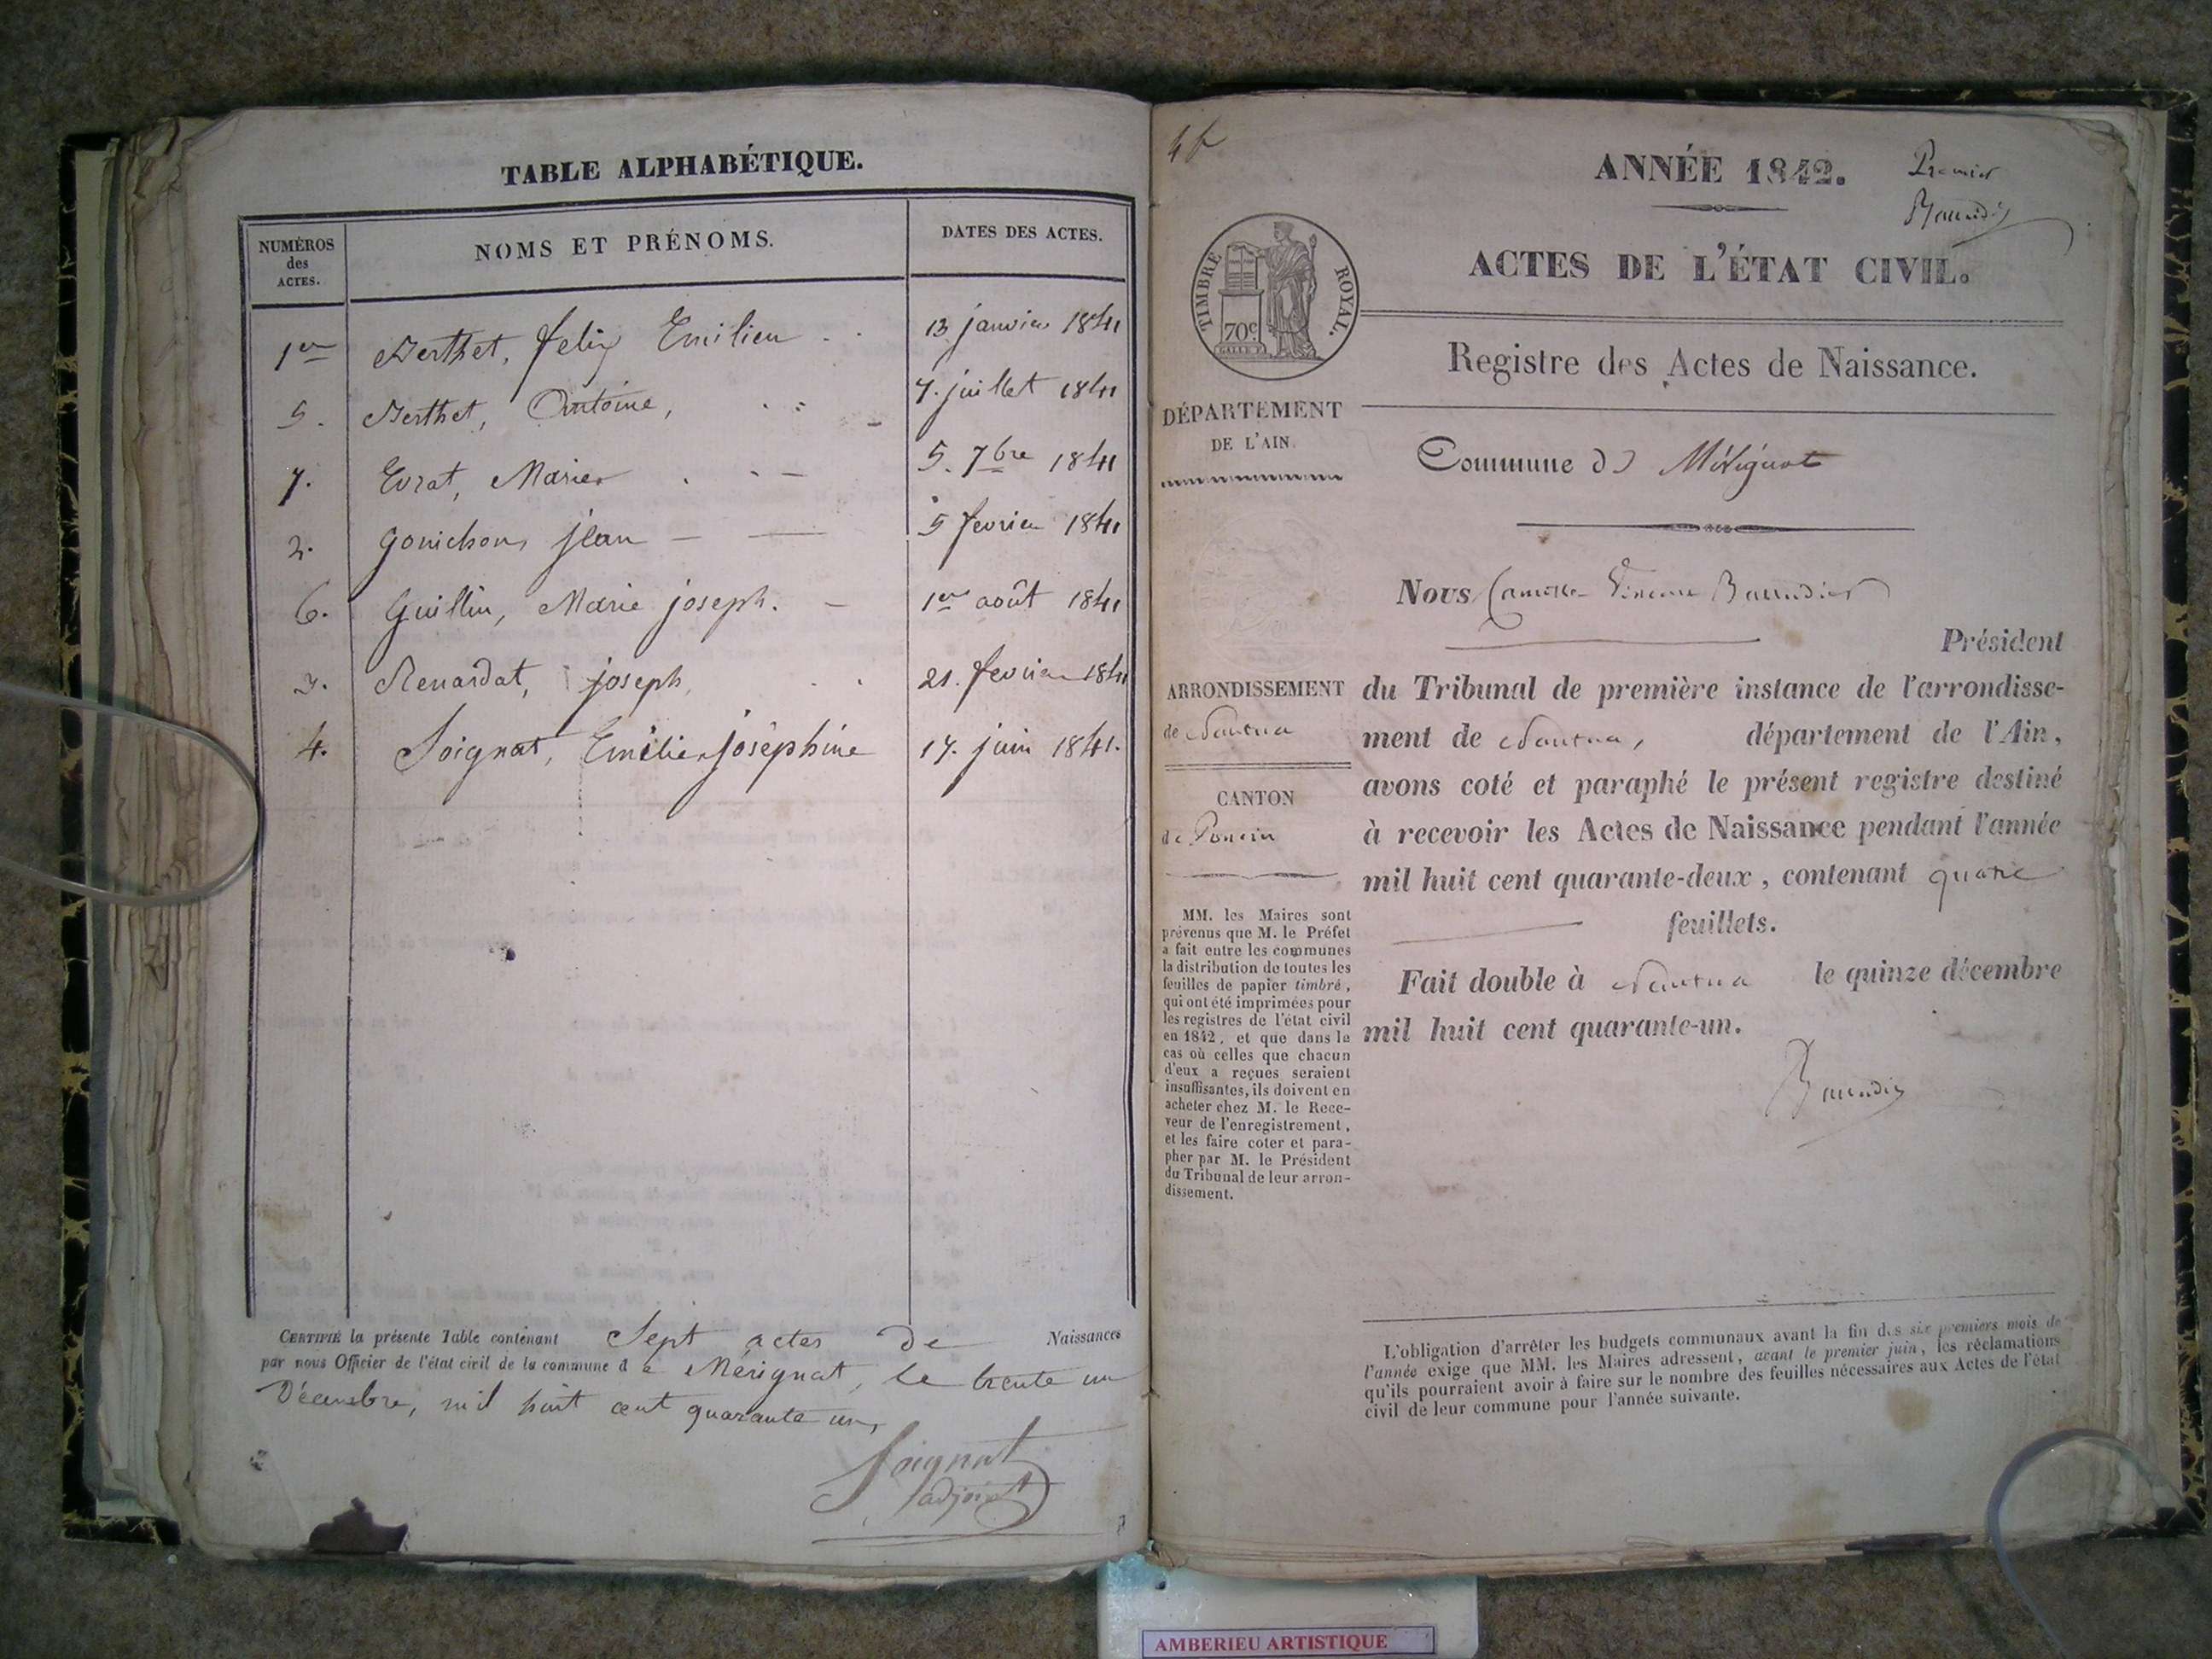 TABLE ALPHABÉTIQUE.
NUMÉROS des ACTES. NOMS ET PRÉNOMS. DATES DES ACTES.
1er Berthet, felix Emilien 13 janvier 1841
5. Berthet, Antoine, 7. juillet 1841
7. Evrat, Marie 5. 7bre 1841
2. Gonichon, jean 5 fevrier 1841
6. Guillin, Marie joseph. 1er août 1841
3. Renardat, joseph, 21. fevrier 1841
4. Soignat, Emilie Joséphine 17. juin 1841.
CERTIFIÉ la présente Table contenant Sept actes de Naissances
par nous Officier de l'état civil de la commune d e Mérignat, le trente un
Décembre, mil huit cent quarante un,
Soignat
adjoint
ANNÉE 1842.
Premier
Baudier
TIMBRE ROYAL.
70c
ACTES DE L'ÉTAT CIVIL.
Registre des Actes de Naissance.
DÉPARTEMENT
DE L'AIN.
Commune de Mérignat
Nous
Président
ARRONDISSEMENT
de Nantua
CANTON
de Poncin
du Tribunal de première instance de l'arrondisse-
ment de Nantua, département de l'Ain,
avons coté et paraphé le présent registre destiné
à recevoir les Actes de Naissance pendant l'année
mil huit cent quarante-deux, contenant quatre
feuillets.
Fait double à Nantua le quinze décembre
mil huit cent quarante-un.
MM. les Maires sont
prévenus que M. le Préfet
a fait entre les communes
la distribution de toutes les
feuilles de papier timbré,
qui ont été imprimées pour
les registres de l'état civil
en 1842, et que dans le
cas où celles que chacun
d'eux a reçues seraient
insuffisantes, ils doivent en
acheter chez M. le Rece-
veur de l'enregistrement,
et les faire coter et para-
pher par M. le Président
du Tribunal de leur arron-
dissement.
L'obligation d'arrêter les budgets communaux avant la fin des six premiers mois de
l'année exige que MM. les Maires adressent, avant le premier juin, les réclamations
qu'ils pourraient avoir à faire sur le nombre des feuilles nécessaires aux Actes de l'état
civil de leur commune pour l'année suivante.
AMBERIEU ARTISTIQUE